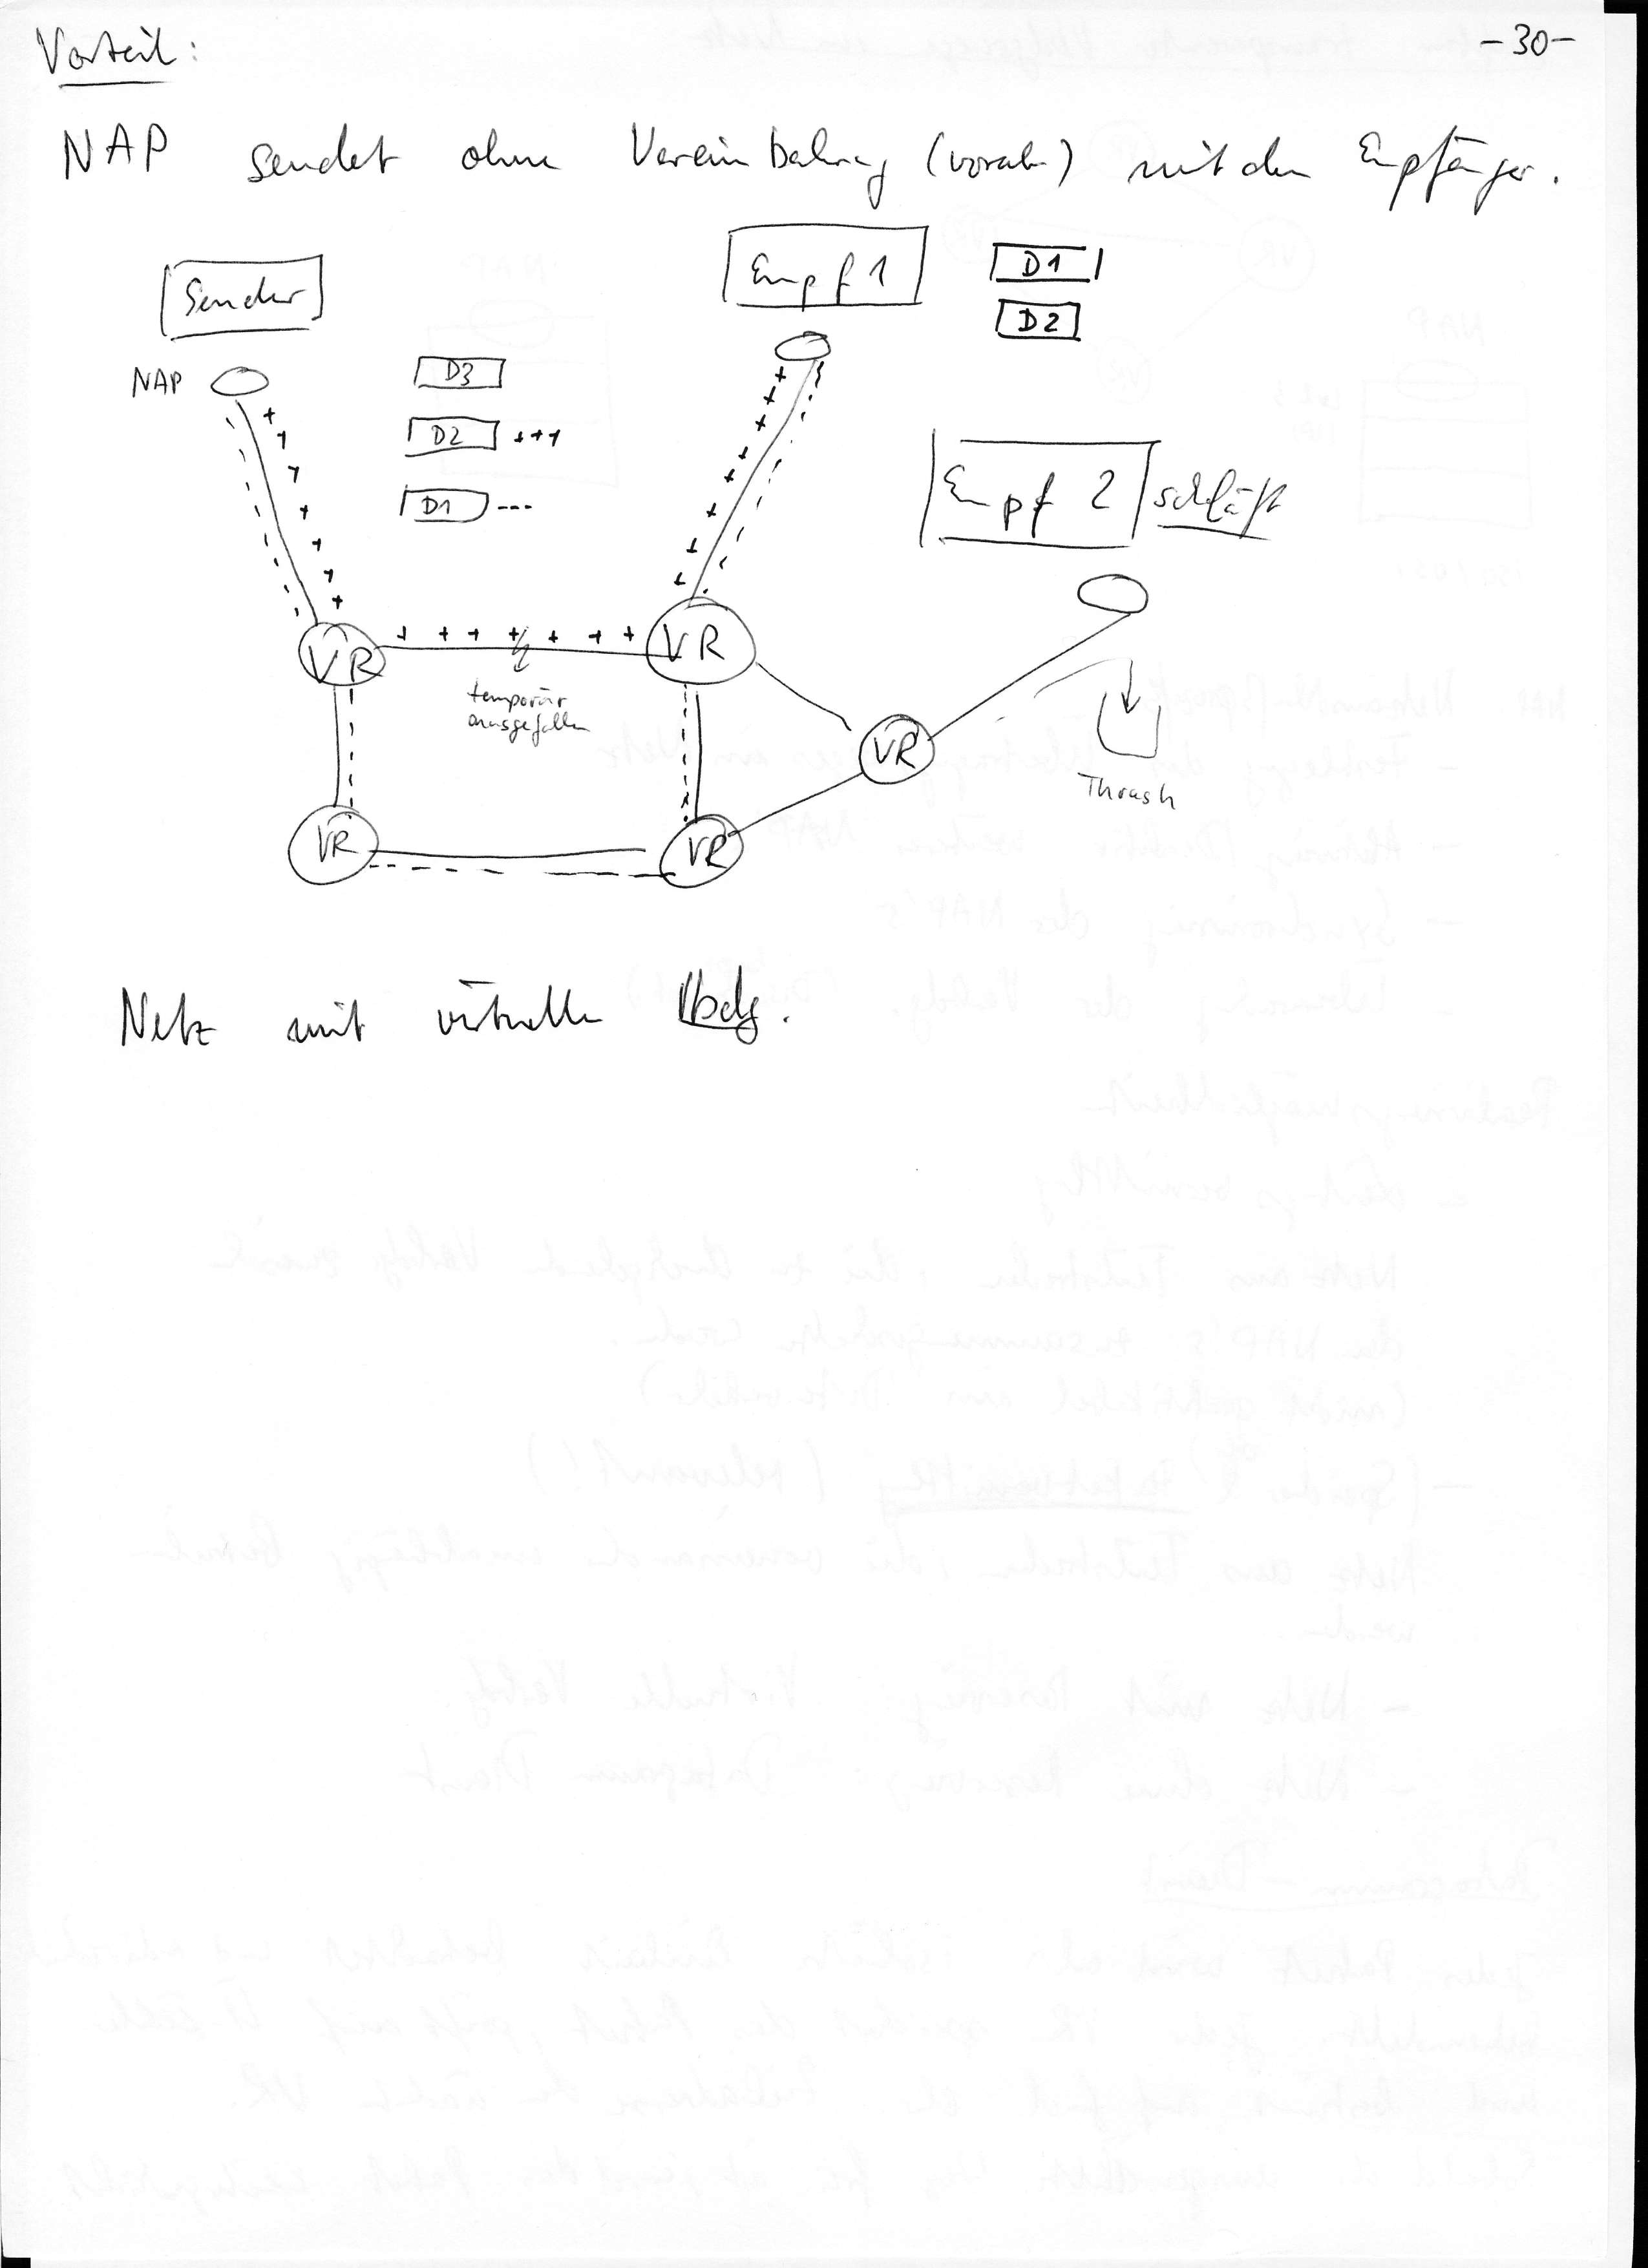 Vorteil:
-30-
NAP sendet ohne Vereinbahrung (vorab) mit den Empfänger.
Sender
Empf 1
D1
D2
NAP
D3
D2 +++
D1 ---
Empf 2 schläft
VR
VR
temporär
ausgefallen
VR
Thrash
VR
VR
Netz mit virtuelle Vbdg.